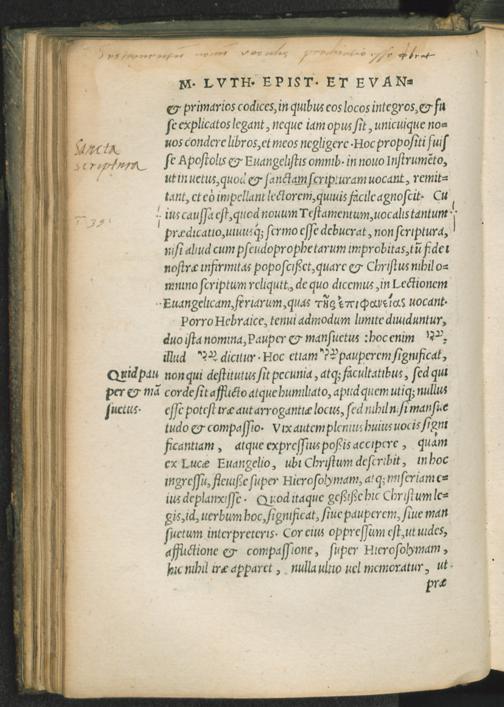 M. LVTH. EPIST. ET EVAN=
& primarios codices, in quibus eos locos integros, & fu
se explicatos legant, neque iam opus sit, unicuique no=
uos condere libros, et meos negligere. Hoc propositi fuis
se Apostolis & Euangelistis omnib. in nouo Instrumēto,
ut in uetus, quod & sanctam scripturam uocant, remit=
tant, et eò impellant lectorem, quiuis facile agnoscit. Cu
ius caussa est, quod nouum Testamentum, uocalis tantum
prædicatio, uiuusq; sermo esse debuerat, non scriptura,
nisi aliud cum pseudoprophetarum improbitas, tū fidei
nostræ infirmitas poposcißet, quare & Christus nihil o=
mnino scriptum reliquit, de quo dicemus, in Lectionem
Euangelicam, feriarum, quas τῆς ἐπιφανείας uocant.
Porro Hebraice, tenui admodum limite diuiduntur,
duo ista nomina, Pauper & mansuetus: hoc enim
illud dicitur. Hoc etiam pauperem significat,
non qui destitutus sit pecunia, atq; facultatibus, sed qui
corde sit afflicto atque humiliato, apud quem utiq; nullus
esse potest iræ aut arrogantiæ locus, sed nihil nisi mansue
tudo & compassio. Vix autem plenius huius uocis signi
ficantiam, atque expressius poßis accipere, quàm
ex Lucæ Euangelio, ubi Christum describit, in hoc
ingressu, fleuisse super Hierosolymam, atq; miseriam e=
ius deplanxisse. Quod itaque geßiße hic Christum le=
gis, id, uerbum hoc, significat, siue pauperem, siue man
suetum interpreteris. Cor eius oppressum est, ut uides,
afflictione & compassione, super Hierosolymam,
hic nihil iræ apparet, nulla ultio uel memoratur, ut
præ
Sancta
scriptura
Quid pau
per & mā
suetus.